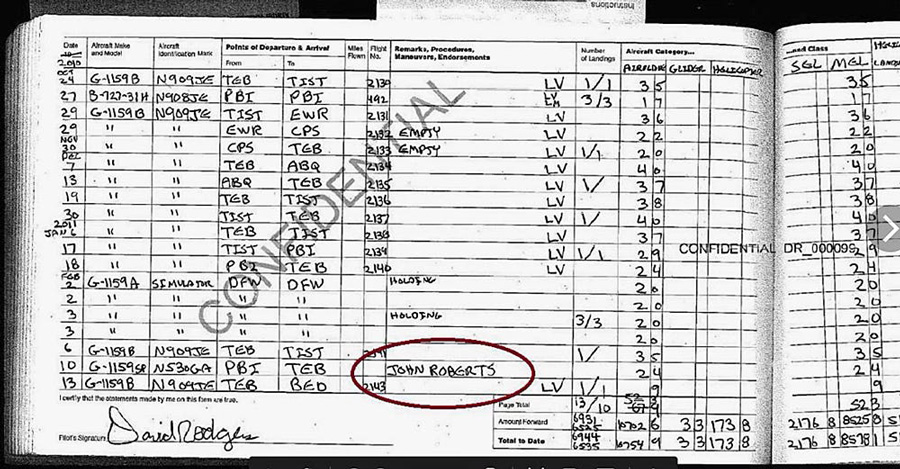 Instructions
Date Aircraft Make and Model Aircraft Identification Mark Points of Departure & Arrival From To Miles Flown Flight No. Remarks, Procedures, Maneuvers, Endorsements Number of Landings Aircraft Category... AIRPLANE GLIDER HELICOPTER ...and Class SEL MEL
2010
OCT 24 G-1159B N909JE TEB TIST 2130 LV 1/1 3 5 3 5
27 B-727-31H N908JE PBI PBI 492 LV 3/3 1 7 1 7
29 G-1159B N909JE TIST EWR 2131 LV 3 6 3 6
29 " " EWR CPS 2132 EMPTY LV 2 2 2 2
NOV 30 " " CPS TEB 2133 EMPTY LV 1/1 2 0 2 0
DEC 7 " " TEB ABQ 2134 LV 4 0 4 0
13 " " ABQ TEB 2135 LV 1/ 3 7 3 7
19 " " TEB TIST 2136 LV 3 8 3 8
30 " " TIST TEB 2137 LV 1/ 4 0 4 0
2011
JAN 6 " " TEB TIST 2138 LV 3 7 3 7
17 " " TIST PBI 2139 LV 1/1 2 9 2 9
18 " " PBI TEB 2140 LV 2 4 2 4
FEB 2 G-1159A SIMULATOR DFW DFW HOLDING 2 0 2 0
2 " " " " 2 0 2 0
3 " " " " HOLDING 3/3 2 0 2 0
3 " " " " 2 0 2 0
6 G-1159B N909JE TEB TIST 1/ 3 5 3 5
10 G-1159SP N530GA PBI TEB JOHN ROBERTS 2 4 2 4
13 G-1159B N909JE TEB BED 2143 LV 1/1 9 9
I certify that the statements made by me on this form are true.
Page Total 13/10 52 3
Amount Forward 6931 6525 10702 6 3 3 173 8 2176 8 8525 8
Pilot's Signature David Rodgers Total to Date 6944 6535 10754 9 3 3 173 8 2176 8 8578 1
CONFIDENTIAL
CONFIDENTIAL DR_000099